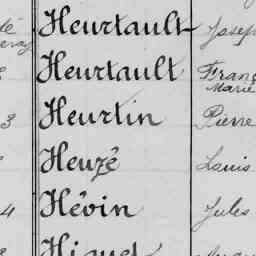 Heurtault Joseph
Heurtault Franç
Marie
3 Heurtin Pierre
Heuzé Louis
4 Hévin Jules